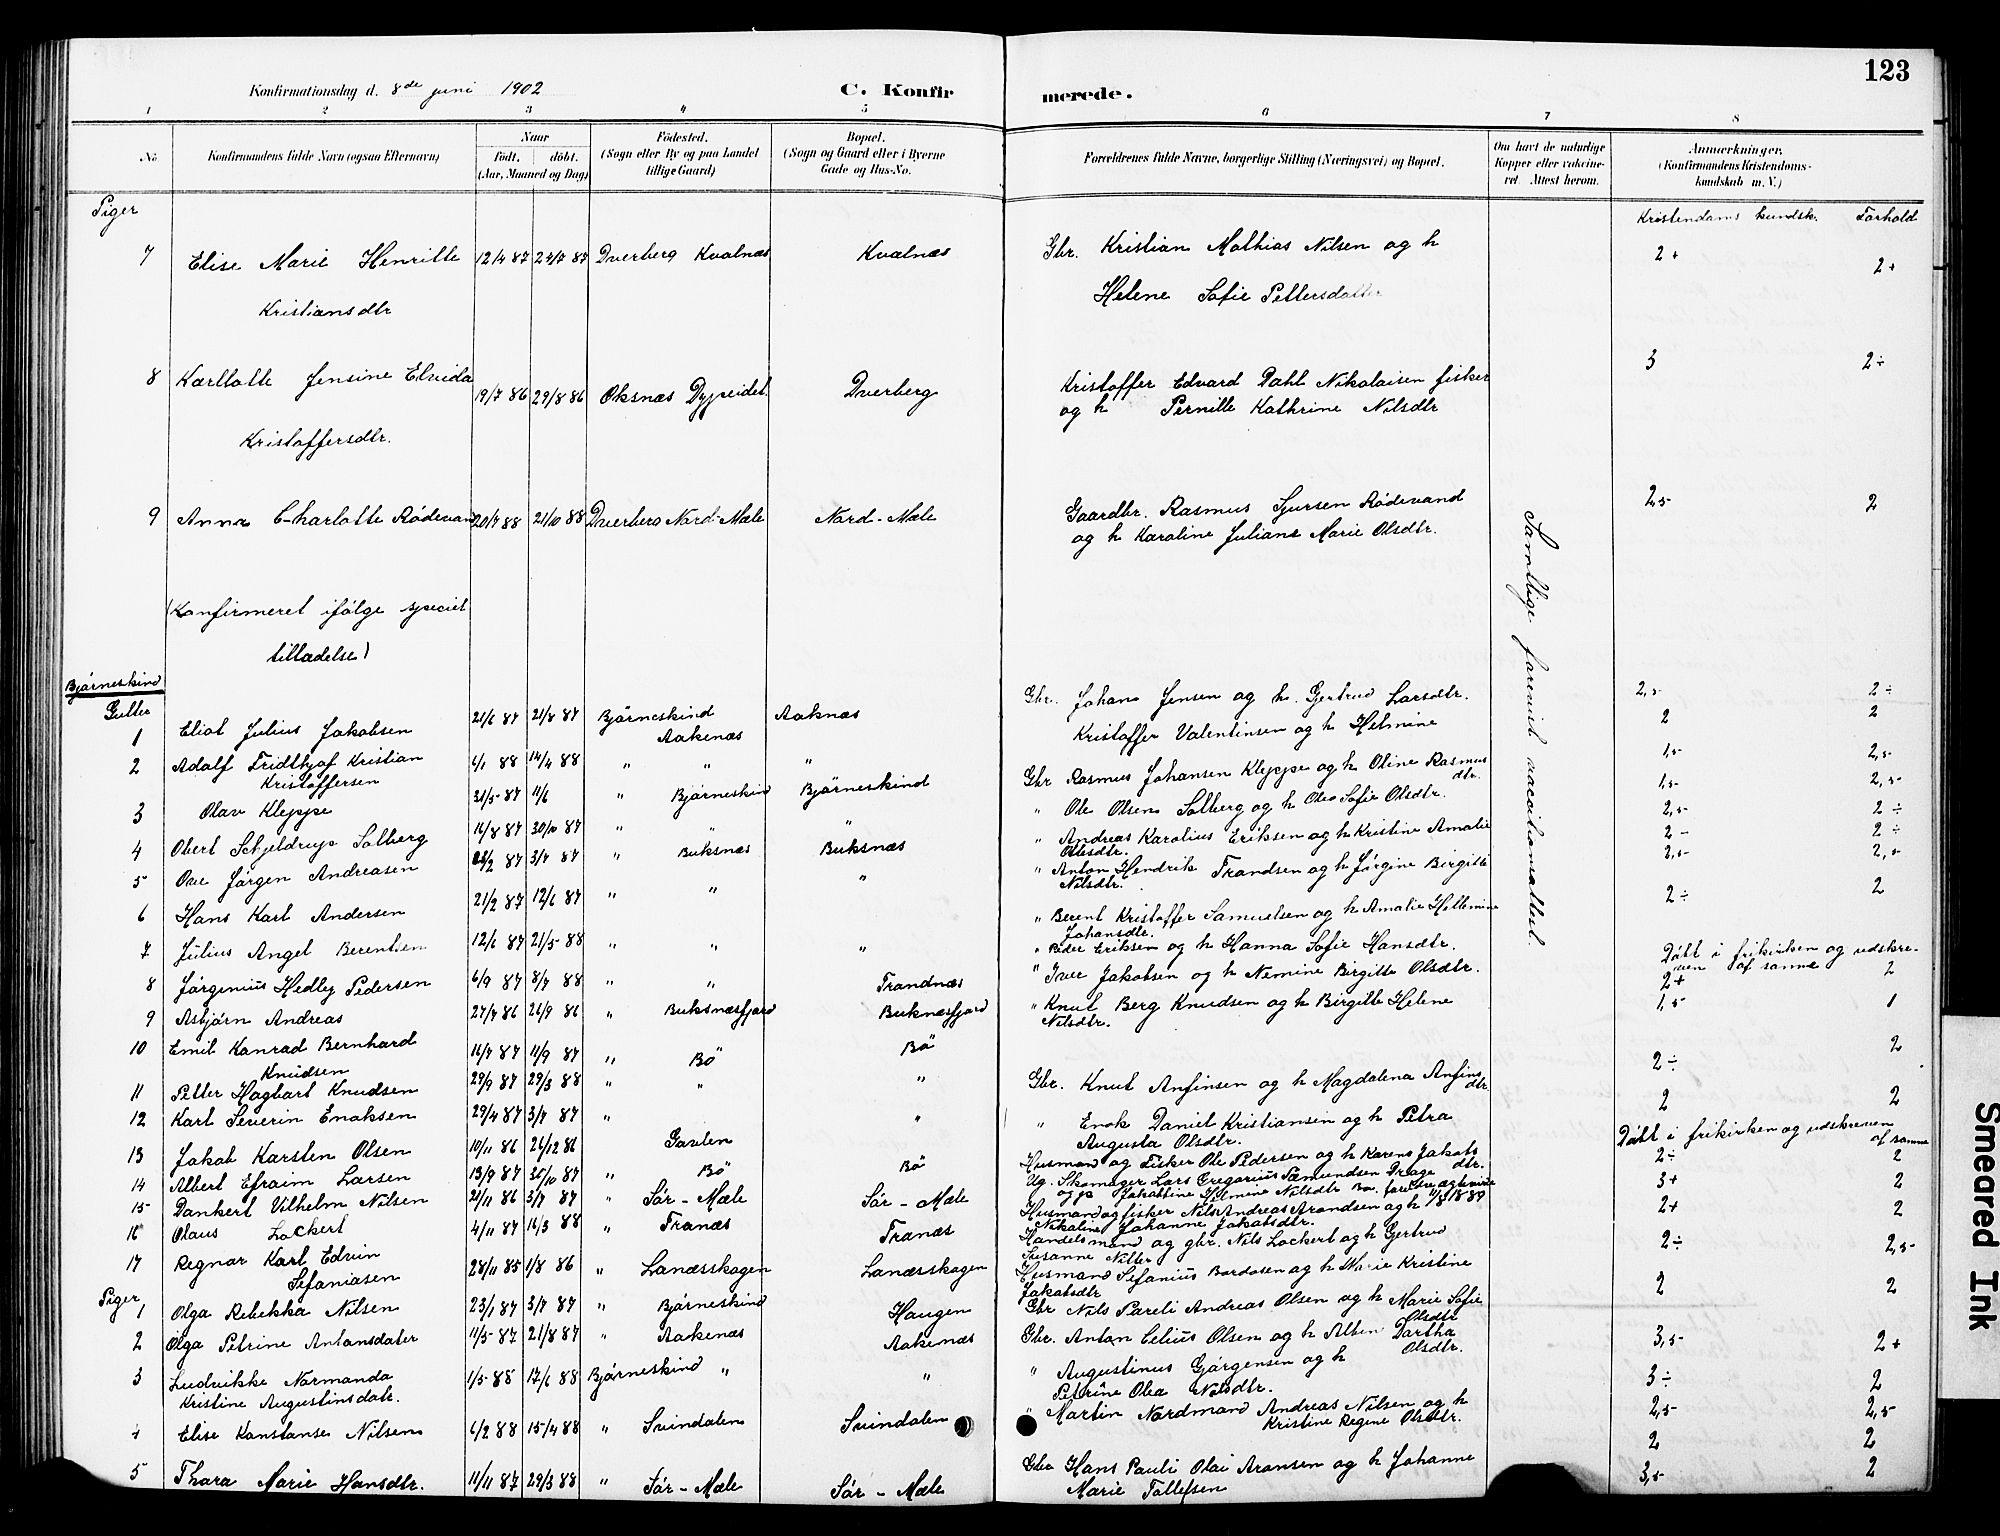 123
Konfirmationsdag d. 8de juni 1902
C. Konfirmerede.
1 2 3 4 5 6 7 8
No
Konfirmandens fulde Navn (ogsaa Efternavn)
Naar
født. døbt.
(Aar, Maaned og Dag)
Fødested.
(Sogn eller By og paa Landet
tillige Gaard)
Bopæl.
(Sogn og Gaard eller i Byerne
Gade og Hus-No.
Forældrenes fulde Navne, borgerlige Stilling (Næringsvei) og Bopæl.
Om havt de naturlige
Kopper eller vaccine-
ret. Attest herom.
Anmærkninger,
(Konfirmandens Kristendoms-
kundskab m. V.)
Piger
Kristendoms kundsk. Forhold
7 Elise Marie Henritte 12/4 87 24/7 87 Dverberg Kvalnæs Kvalnæs Gbr. Kristian Mathias Nilsen og h 2+ 2+
Kristiansdtr Helene Sofie Pettersdatter
8 Karllotte Jensine Elvida 19/7 86 29/8 86 Oksnæs Dypeidet Dverberg Kristoffer Edvard Dahl Nikolaisen fisker 3 2÷
Kristoffersdtr. og h Pernille Kathrine Nilsdtr
9 Anna Charlotte Rødevand 20/7 88 21/10 88 Dverberg Nord-Mæle Nord-Mæle Gaardbr. Rasmus Sjursen Rødevand 2,5 2
og h Karoline Juliane Marie Olsdtr.
(Konfirmeret ifølge speciel
tilladelse)
Samtlige forevist vaccinationsattest.
Bjørneskind
Gutter
1 Eliot Julius Jakobsen 21/6 87 21/8 87 Bjørneskind Aakenæs Aaknæs Gbr. Johans Jensen og h. Gjertrud Larsdtr. 2,5 2÷
2 Adolf Fridthjof Kristian 6/1 88 14/4 88 " " " Kristoffer Valentinsen og h Helmine 2 2
Kristoffersen
3 Olav Kleppe 31/5 87 11/6 " Bjørneskind Bjørneskind Gbr Rasmus Johansen Kleppe og h Oline Rasmus 1,5 2,5
dtr.
4 Obert Schjeldrup Solberg 14/8 87 30/10 87 " " " " Ole Olsen Solberg og h Olea Sofie Olsdtr. 1,5 2,5
5 Ove Jørgen Andreasen 3/7 87 " Buksnæs Buksnæs " Andreas Karolius Eriksen og h Kristine Amalie 2,5 2÷
Olesdtr. 2- 2÷
6 Hans Karl Andersen 21/2 87 12/6 87 " " " " Anton Hendrik Frandsen og h Jørgine Birgitte 2,5 2,5
Nilsdtr.
7 Julius Angel Berentsen 12/6 87 21/5 88 " " " " Berent Kristoffer Samuelsen og h Amalie Hellemine 2÷ 2
Johansdtr.
8 Jørgenius Hedley Pedersen 6/9 87 8/7 88 " " Frandnæs " Peder Eriksen og h Hanna Sofie Hansdtr. Døbt i frikirken og udskre-
ven af samme
9 Asbjørn Andreas 27/7 86 26/9 86 " Buksnæsfjord Buknæsfjord " Iver Jakobsen og h Nemine Birgitte Olsdtr. 2+ 2
10 Emil Konrad Bernhard 16/7 87 11/9 87 " Bø Bø " Knut Berg Knudsen og h Birgitte Helene 1,5 1
Knudsen Nilsdtr.
11 Petter Hagbart Knudsen 29/9 87 29/3 88 " " " Gbr. Knut Anfinsen og h Magdalena Anfins 2÷ 2
dtr.
12 Karl Severin Enoksen 29/4 87 3/7 87 " " " Enok Daniel Kristiansen og h Petra 2 2
Augusta Olsdtr.
13 Jakob Karsten Olsen 10/11 86 26/12 86 Gavlen Husmand og Fisker Ole Pedersen og h Karens Jakobs Døbt i frikirken og udskreven
dtr. af samme
14 Albert Efraim Larsen 13/9 87 30/10 87 " Bø Bø Ug. Skomager Lars Gregorius Sæmundsen Drage 2÷ 2
og p Jakobine Helmine Nilsdtr
15 Dankert Vilhelm Nilsen 21/11 86 3/7 87 " Sør-Mæle Sør-Mæle Husmand og fisker Nils Andreas Arondsen og h 3+ 2
Nikoline Johanne Jakobsdtr.
16 Olaus Lockert 4/11 87 16/3 88 " Franæs Franæs Handelsmand og gbr. Nils Lockert og h Gertrud 2+ 2
Susanne
17 Regnar Karl Edvin 28/11 85 1/8 86 " Lanæsskogen Lanæsskogen Husmand Sefanius Bordosen og h Marie Kristine 2÷ 2,5
Sefaniasen Jakobsdtr
Piger
1 Olga Rebekka Nilsen 23/1 87 3/7 87 " Bjørneskind Haugen Gbr Nils Pareli Andreas Olsen og h Marie Sofie 2 2
Olsdtr
2 Olga Petrine Antonsdater 11/5 87 21/8 87 " Aakenæs Aakenæs Gbr. Anton Celius Olsen og h Alben Dortha 3,5 2+
Olsdtr.
3 Ludvikke Normanda 1/5 88 17/6 88 Bjørneskind " " " Augustinus Gjørgensen og h 3÷ 2
Kristine Augustinsdatr. Petrine Olea Nilsdtr.
4 Elise Konstanse Nilsen 6/2 88 15/4 88 " Svindalen Svindalen " Martin Nordmand Andreas Nilsen og h 2,5 2,5
Kristine Regine Olsdtr. 2 2
5 Thora Marie Hansdtr. 11/11 87 29/3 88 " Sør-Mæle Sør-Mæle Gbr Hans Pauli Olai Aronsen og h Johanne 3,5 2
Marie Tollefsen
Smeared Ink